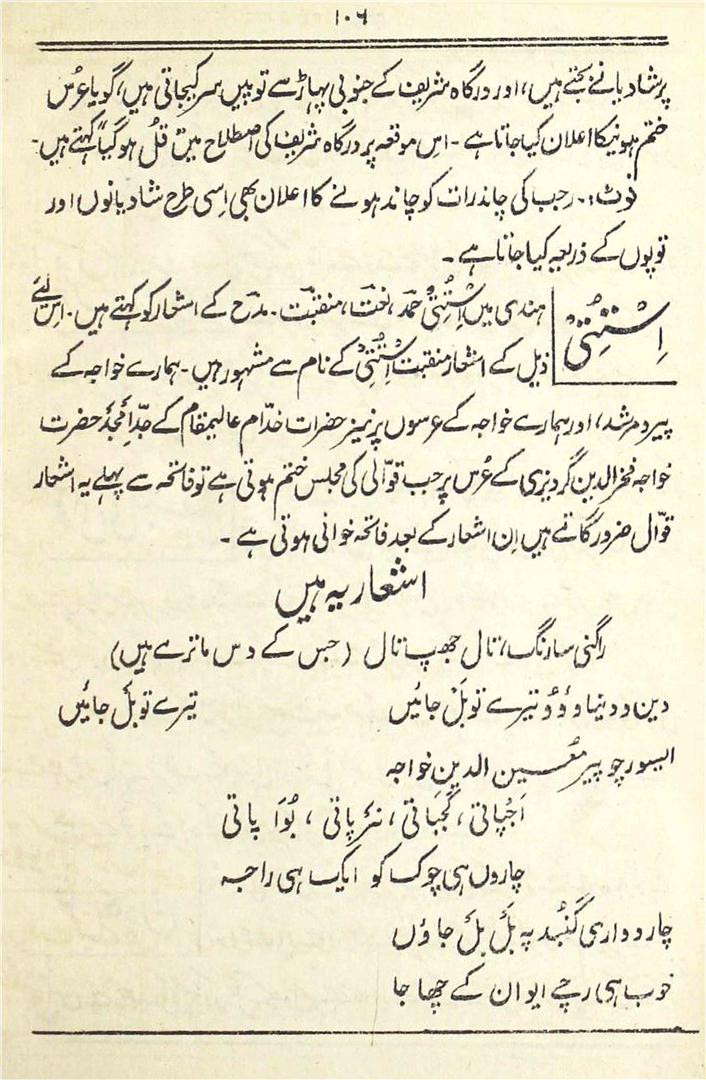 ۱۰۶
پر شادیانے بجتے ہیں، اور درگاہ شریف کے جنوبی پہاڑ سے توپیں سر کیجاتی ہیں، گویا عرُس
ختم ہونیکا اعلان کیا جاتا ہے ۔ اس موقعہ پر درگاہ شریف کی اصطلاح میں "قلُ ہو گیا" کہتے ہیں۔
نوٹ:۔ رجب کی چاندرات کو چاند ہونے کا اعلان بھی اِسی طرح شادیانوں اور
توپوں کے ذریعہ کیا جاتا ہے ۔
اِسْتُتِیْ
ہندی میں اِسْتُتِیْ حمد، نعت، منقبت ۔ مدَح کے اشعار کو کہتے ہیں۔ اِس لئے
ذیل کے اشعار منقبت اِسْتُتِیْ کے نام سے مشہور ہیں ۔ ہمارے خواجہ کے
پیر و مرشد، اور ہمارے خواجہ کے عرسوں پر نیز حضرات خدّام عالیمقام کے جدِّ امجدُ حضرت
خواجہ فخر الدین گردیزی کے عُرس پر جب قوّالی کی مجلس ختم ہوتی ہے تو فاتحہ سے پہلے یہ اشعار
قوّال ضرور گاتے ہیں اِن اشعار کے بعد فاتحہ خوانی ہوتی ہے ۔
اشعار یہ ہیں
راگنی سارنگ، تال جھپ تال (جس کے دس ماترے ہیں)
دین و دنیا دوُوُ تیرے توبَلْ جائیں تیرے توبَل جائیں
ایسو رچو پیر معُین الدین خواجہ
اَجُپاتی ، گَجَپاتی ، نَرَپاتی ، بُوَا پاتی
چاروں ہی چوک کو ایک ہی راجہ
چار دواری گنُبد پہ بَلْ بَلْ جاؤں
خوب ہی رچے ایوان کے چھاجا